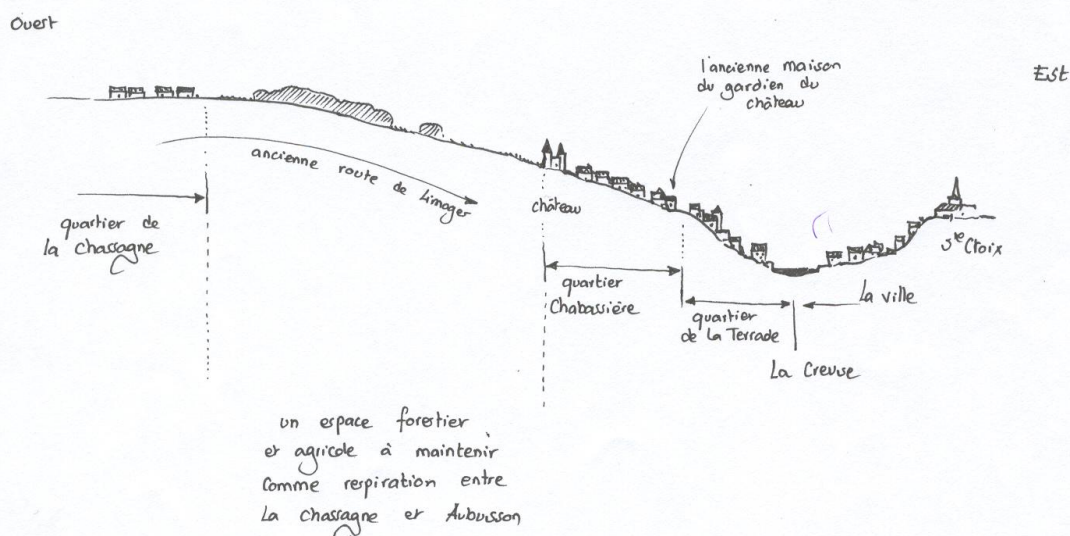 Ouest
Est
l'ancienne maison
du gardien du
château
ancienne route de Limoges
quartier de
la Chassagne
château
Ste Croix
quartier
Chabassière
La ville
quartier
de la Terrade
La Creuse
un espace forestier
et agricole à maintenir
comme respiration entre
La Chassagne et Aubusson